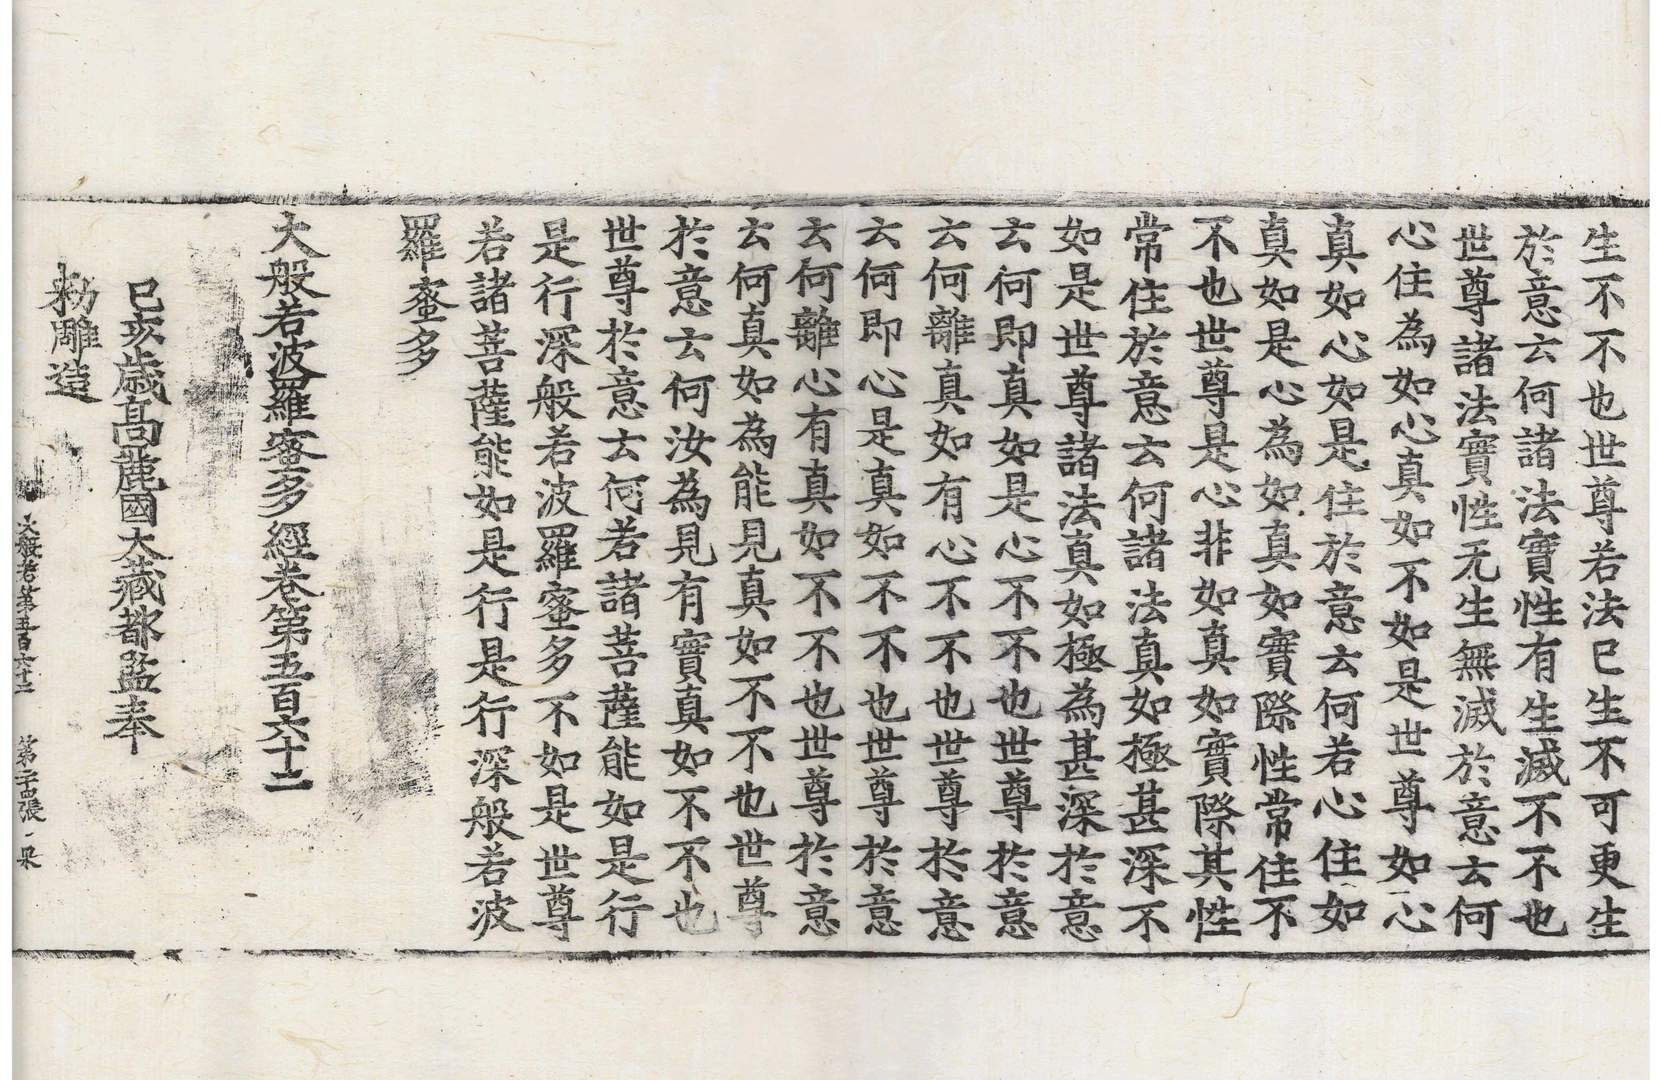 生不不也世尊若法已生不可更生
於意云何諸法實性有生滅不不也
世尊諸法實性无生無滅於意云何
心住為如心真如不如是世尊如心
真如心如是住於意云何若心住如
真如是心為如真如實際性常住不
不也世尊是心非如真如實際其性
常住於意云何諸法真如極甚深不
如是世尊諸法真如極為甚深於意
云何即真如是心不不也世尊於意
云何離真如有心不不也世尊於意
云何即心是真如不不也世尊於意
云何離心有真如不不也世尊於意
云何真如為能見真如不不也世尊
於意云何汝為見有實真如不不也
世尊於意云何若諸菩薩能如是行
是行深般若波羅蜜多不如是世尊
若諸菩薩能如是行是行深般若波
羅蜜多
大般若波羅蜜多經卷第五百六十二
己亥歲高麗國大藏都監奉
勑雕造
大般若第五百六十二 第二十四張